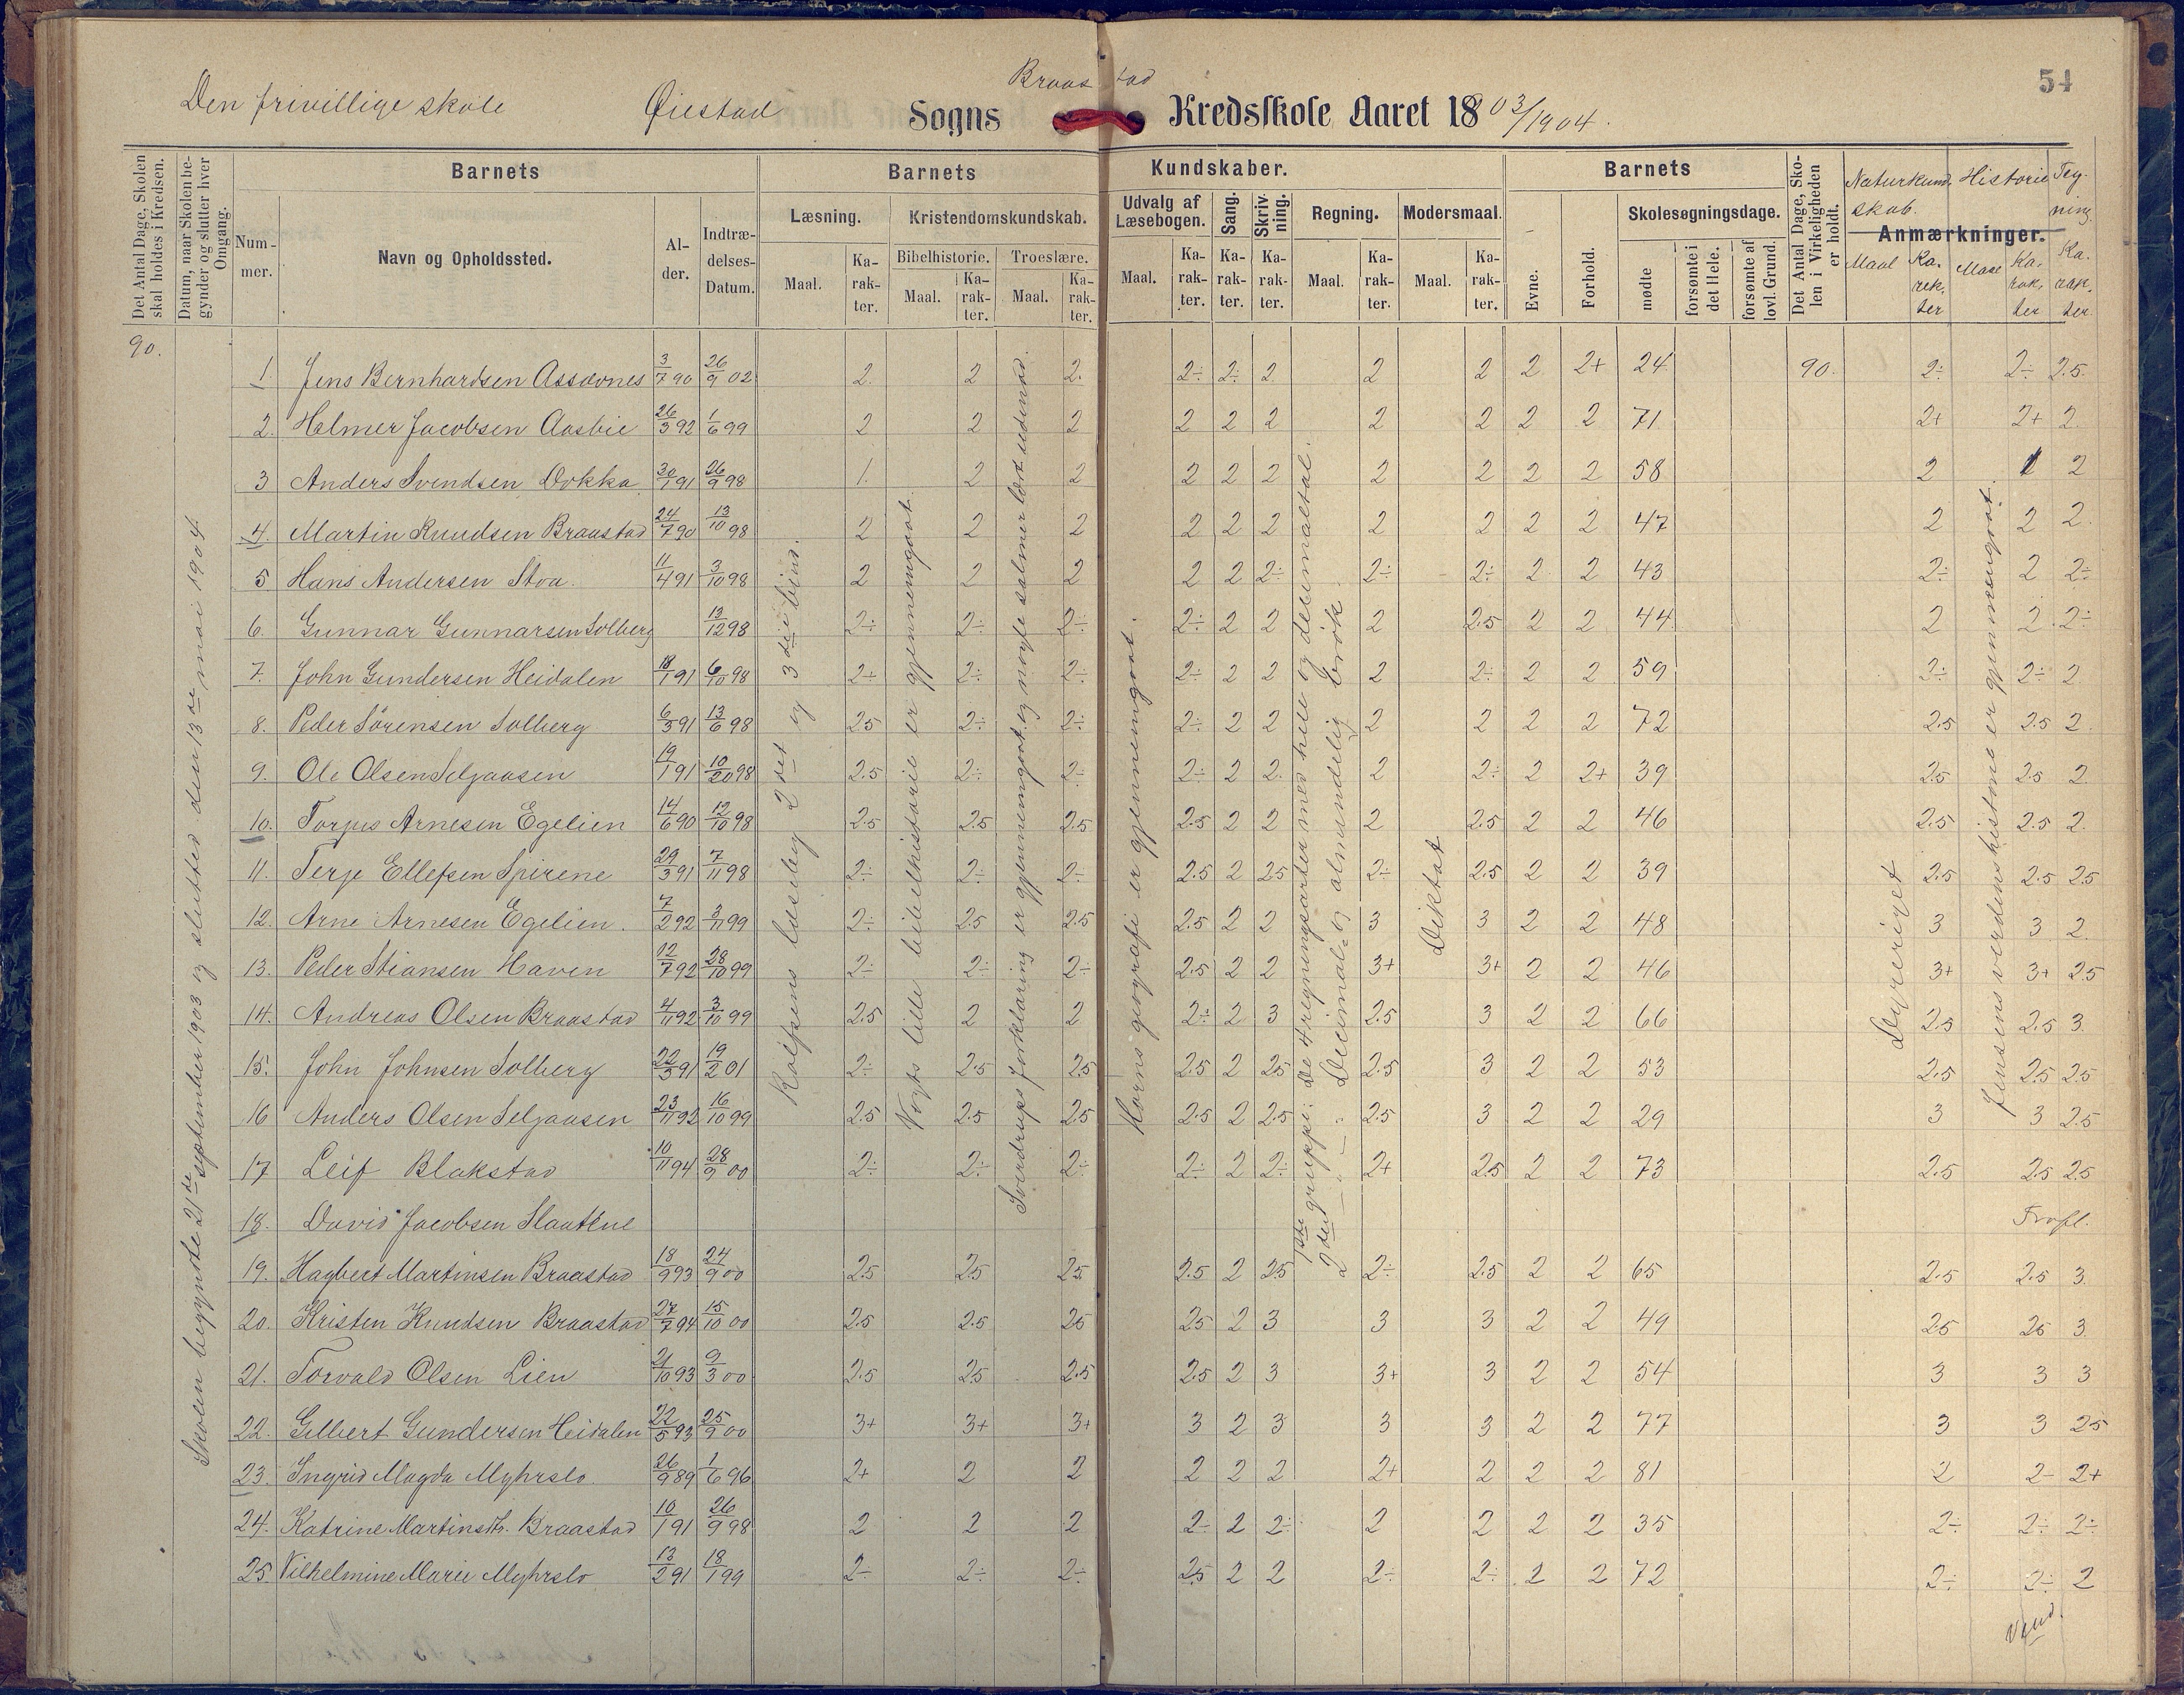 54
Den frivillige skole Øiestad Sogns Braastad Kredsskole Aaret 1803/1904.
Det Antal Dage, Skolen skal holdes i Kredsen.
Datum, naar Skolen begynder og slutter hver Omgang.
Barnets
Nummer.
Navn og Opholdssted.
Alder.
Indtrædelses-Datum.
Barnets Kundskaber.
Læsning.
Maal.
Karakter.
Kristendomskundskab.
Bibelhistorie.
Maal.
Karakter.
Troeslære.
Maal.
Karakter.
Udvalg af Læsebogen.
Maal.
Karakter.
Sang.
Karakter.
Skrivning.
Karakter.
Regning.
Maal.
Karakter.
Modersmaal.
Maal.
Karakter.
Barnets
Evne.
Forhold.
Skolesøgningsdage.
mødte
forsømte i det Hele.
forsømte af lovl. Grund.
Det Antal Dage, Skolen i Virkeligheden er holdt.
Anmærkninger.
Naturkundskab.
Maal
Karakter
Historie
Maal
Karakter
Tegning
Karakter
90.
Skolen begyndte 21de september 1903 og slutted den 13de mai 1904
Rolfsens læsebog 2det og 3die bind.
Vogts lille bibelhistorie er gjennemgaat.
Sverdrups forklaring er gjennemgaat og nogle salmer lært udenad.
Horns geografi er gjennemgaat.
1ste gruppe: De 4 regningsarter med hele og decimaltal.
2den - " - Decimal- og almindelig brök
Diktat
Dyreriget
Jensens verdenshistorie er gjennemgaat.
1. Jens Bernhardsen Assævnes 3/7 90 26/9 02 2. 2 2. 2÷ 2÷ 2 2 2 2 2+ 24 90. 2÷ 2÷ 2.5
2. Helmer Jacobsen Aasbie 26/3 92 1/6 99 2 2 2 2 2 2 2 2 2 2 71 2+ 2+ 2
3 Anders Svendsen Dokka 30/1 91 26/9 98 1. 2 2 2 2 2 2 2 2 2 58 2 1 2
4. Martin Knudsen Braastad 24/7 90 13/10 98 2 2 2 2 2 2 2 2 2 2 47 2 2 2.
5 Hans Andersen Stoa. 11/4 91 3/10 98 2 2 2 2 2 2÷ 2÷ 2÷ 2 2 43 2÷ 2 2÷
6. Gunnar Gunnarsen Solberg 13/12 98 2÷ 2÷ 2÷ 2÷ 2 2 2 2.5 2 2 44 2 2 2÷
7. John Gundersen Heidalen 18/1 91 6/10 98 2÷ 2÷ 2÷ 2÷ 2 2 2 2÷ 2 2 59 2÷ 2÷ 2
8. Peder Sörensen Solberg 6/3 91 13/6 98 2.5 2÷ 2÷ 2÷ 2 2 2 2 2 2 72 2.5 2.5 2
9. Ole Olsen Seljaasen 19/1 91 10/20 98 2.5 2÷ 2÷ 2÷ 2 2. 2 2÷ 2 2+ 39 2.5 2.5 2
10. Torjus Arnesen Egelien 14/6 90 12/10 98 2.5 2.5 2.5 2.5 2 2 2 2.5 2 2 46 2.5 2.5 2.
11. Terje Ellefsen Spirene 29/3 91 7/11 98 2÷ 2÷ 2÷ 2.5 2 2.5 2÷ 2.5 2 2 39 2.5 2.5 2.5
12. Arne Arnesen Egelien. 7/2 92 3/11 99 2÷ 2.5 2.5 2.5 2 2 3 3 2 2 48 3 3 2.
13. Peder Stiansen Haven 12/7 92 28/10 99 2÷ 2÷ 2÷ 2.5 2 2 3+ 3+ 2 2 46 3+ 3+ 2.5
14. Andreas Olsen Braastad 4/11 92 3/10 99 2.5 2 2 2÷ 2 3 2.5 3 2 2 66 2.5 2.5 3.
15. John Johnsen Solberg 22/3 91 19/2 01 2÷ 2.5 2.5 2.5 2 2.5 2.5 3 2 2 53 2.5 2.5 2.5
16 Anders Olsen Seljaasen 23/11 92 16/10 99 2.5 2.5 2.5 2.5 2 2.5 2.5 3 2 2 29 3 3 2.5
17 Leif Blakstad 10/11 94 28/9 00 2÷ 2÷ 2÷ 2÷ 2 2÷ 2+ 2.5 2 2 73 2.5 2.5 2.5
18. David Jacobsen Slaattene Frafl.
19. Hagbert Martinsen Braastad 18/9 93 24/9 00 2.5 2.5 2.5 2.5 2 2.5 2÷ 2.5 2 2 65 2.5 2.5 3
20. Kristen Knudsen Braastad 27/7 94 15/10 00 2.5 2.5 2.5 2.5 2 3 3 3 2 2 49 2.5 2.5 3
21. Torvald Olsen Lien 21/10 93 9/3 00 2.5 2.5 2.5 2.5 2 3 3+ 3 2 2 54 3 3 3
22. Gilbert Gundersen Heidalen 22/5 93 25/9 00 3+ 3+ 3+ 3 2 3 3 3 2 2 77 3 3 2.5
23. Ingrid Magda Myhrslo 26/9 89 1/6 96 2+ 2 2 2 2 2 2+ 2 2 2 81 2 2- 2+
24. Katrine Martinsdtr. Braastad 10/1 91 26/9 98 2 2 2 2÷ 2 2÷ 2 2 2 2 35 2÷ 2÷ 2÷
25. Vilhelmine Marie Myhrslo 13/2 91 18/1 99 2÷ 2÷ 2÷ 2.5 2 2 2÷ 2÷ 2 2 72 2÷ 2÷ 2
Vend